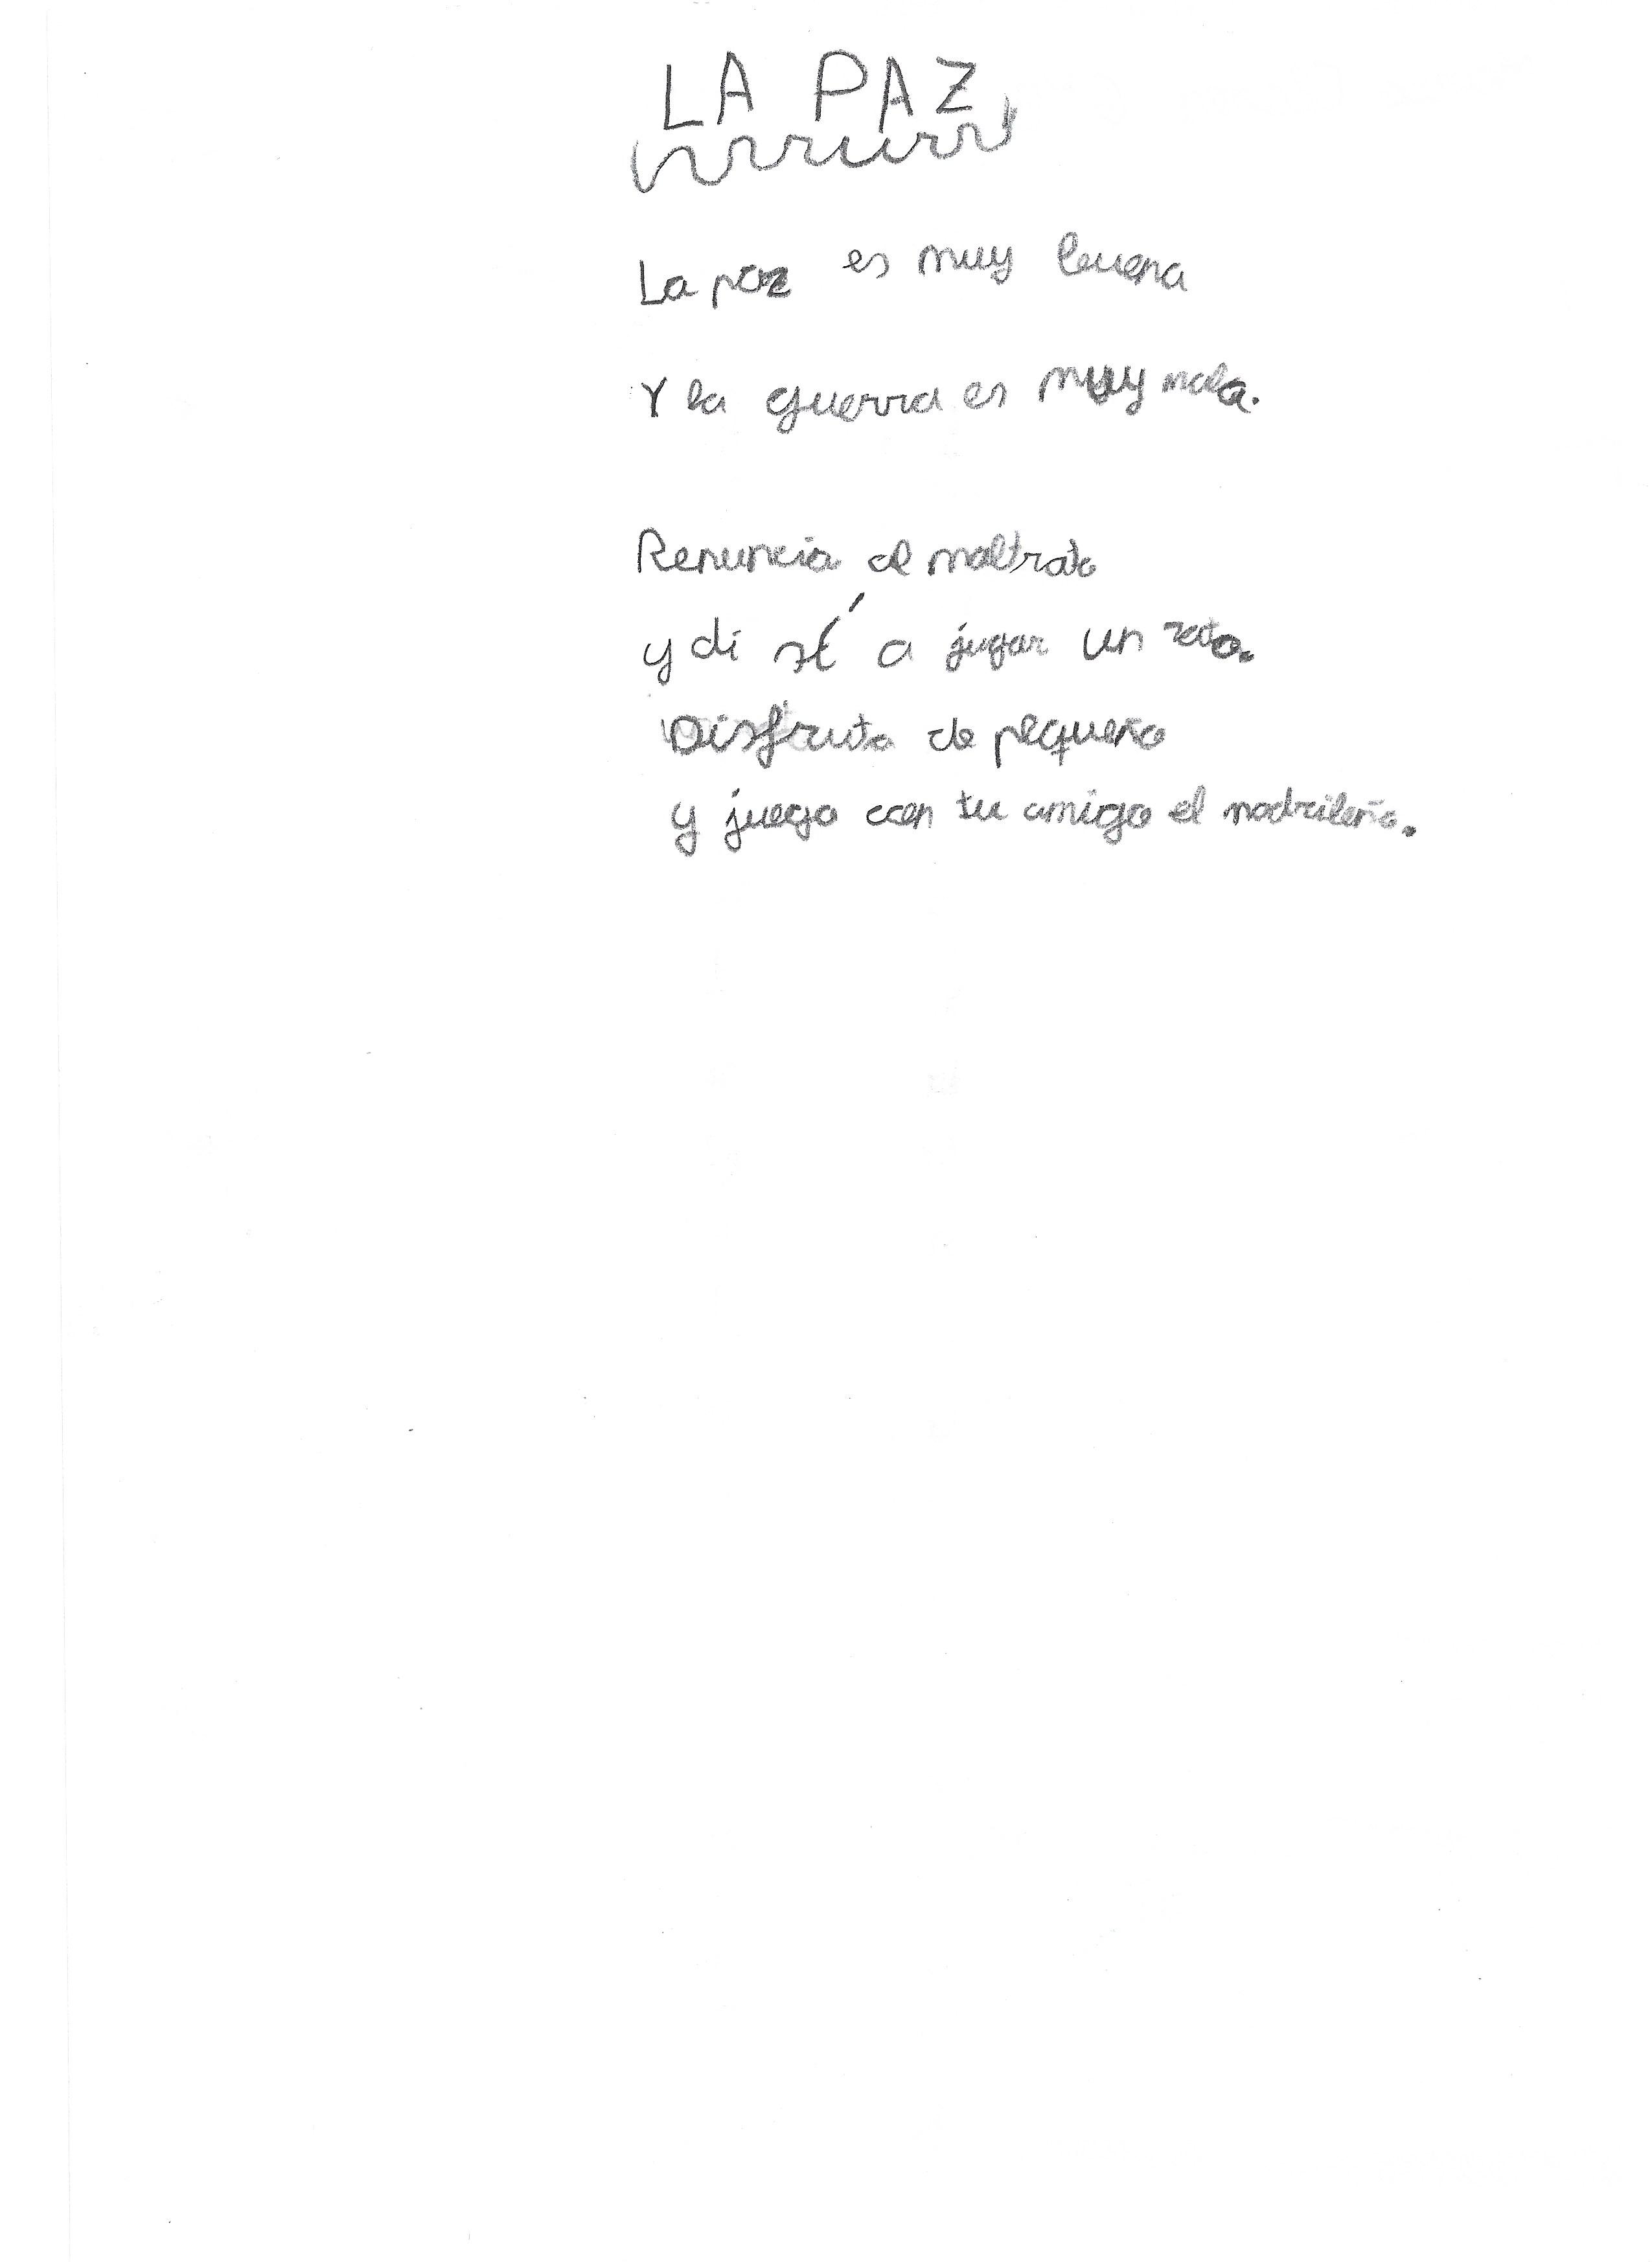 LA PAZ
La paz es muy buena
Y la guerra es muy mala.
Renuncia al maltrato
y di sí a jugar un rato.
Disfruta de pequeño
y juega con tu amigo el madrileño.